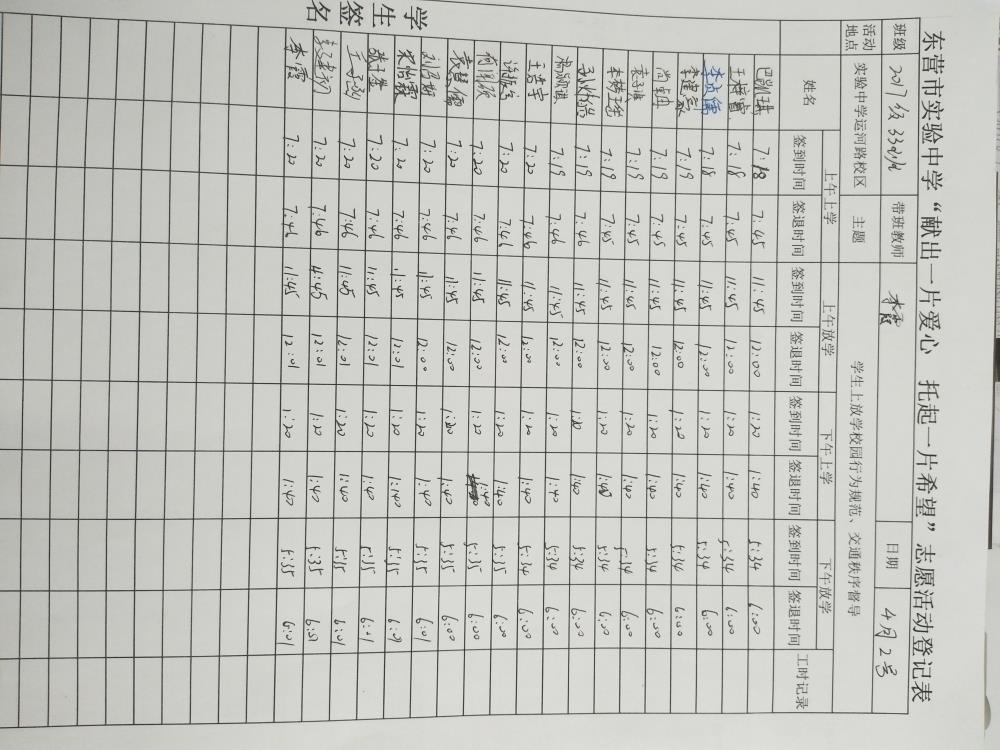 东营市实验中学“献出一片爱心 托起一片希望”志愿活动登记表
班级 2017级33班 带班教师 李霞 日期 4月2号
活动地点 实验中学运河路校区 主题 学生上放学校园行为规范、交通秩序督导
姓名 上午上学 上午放学 下午上学 下午放学 工时记录
签到时间 签退时间 签到时间 签退时间 签到时间 签退时间 签到时间 签退时间
7:18 7:45 11:45 12:00 1:20 1:40 5:34 6:00
7:18 7:45 11:45 12:00 1:20 1:40 5:34 6:00
7:18 7:45 11:45 12:00 1:20 1:40 5:34 6:00
李建豪 7:19 7:45 11:45 12:00 1:20 1:40 5:34 6:00
7:19 7:45 11:45 12:00 1:20 1:40 5:34 6:00
7:19 7:45 11:45 12:00 1:20 1:40 5:34 6:00
7:19 7:45 11:45 12:00 1:20 1:40 5:34 6:00
7:19 7:46 11:45 12:00 1:20 1:40 5:34 6:00
7:19 7:46 11:45 12:00 1:20 1:40 5:34 6:00
王浩宇 7:20 7:46 11:45 12:00 1:20 1:40 5:34 6:00
7:20 7:46 11:45 12:00 1:20 1:40 5:35 6:00
7:20 7:46 11:45 12:00 1:20 1:40 5:35 6:00
7:20 7:46 11:45 12:00 1:20 1:40 5:35 6:00
7:20 7:46 11:45 12:00 1:20 1:40 5:35 6:01
宋怡霖 7:20 7:46 11:45 12:01 1:20 1:40 5:35 6:01
7:20 7:46 11:45 12:01 1:20 1:40 5:35 6:01
7:20 7:46 11:45 12:01 1:20 1:40 5:35 6:01
7:20 7:46 11:45 12:01 1:20 1:40 5:35 6:01
李霞 7:20 7:46 11:45 12:01 1:20 1:40 5:35 6:01
学生签名